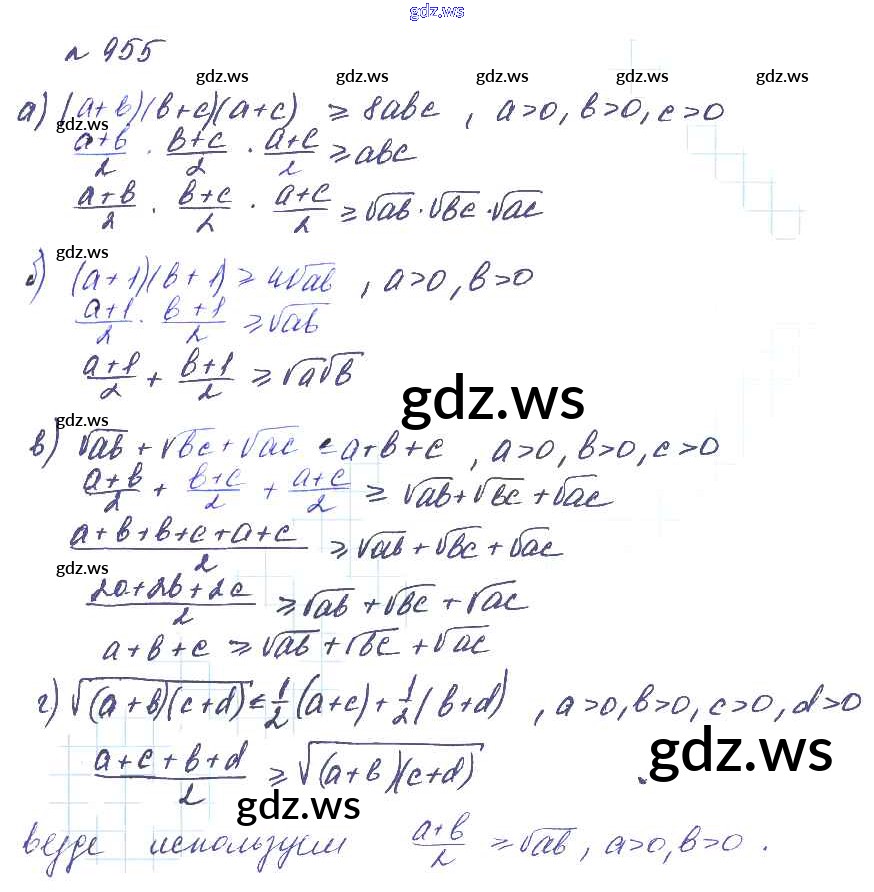 gdz.ws
№ 955
gdz.ws gdz.ws gdz.ws gdz.ws
а) (a+b)(b+c)(a+c) ≥ 8abc, a>0, b>0, c>0
gdz.ws
(a+b)/2 · (b+c)/2 · (a+c)/2 ≥ abc
(a+b)/2 · (b+c)/2 · (a+c)/2 ≥ √ab · √bc · √ac
gdz.ws
б) (a+1)(b+1) ≥ 4√ab, a>0, b>0
(a+1)/2 · (b+1)/2 ≥ √ab
(a+1)/2 + (b+1)/2 ≥ √a√b
gdz.ws
gdz.ws
в) √ab + √bc + √ac ≤ a+b+c, a>0, b>0, c>0
(a+b)/2 + (b+c)/2 + (a+c)/2 ≥ √ab + √bc + √ac
(a+b+b+c+a+c)/2 ≥ √ab + √bc + √ac
gdz.ws
(2a+2b+2c)/2 ≥ √ab + √bc + √ac
a+b+c ≥ √ab + √bc + √ac
г) √((a+b)(c+d)) ≤ 1/2 (a+c) + 1/2 (b+d), a>0, b>0, c>0, d>0
(a+c+b+d)/2 ≥ √((a+b)(c+d))
gdz.ws
gdz.ws
везде используем (a+b)/2 ≥ √ab, a>0, b>0.